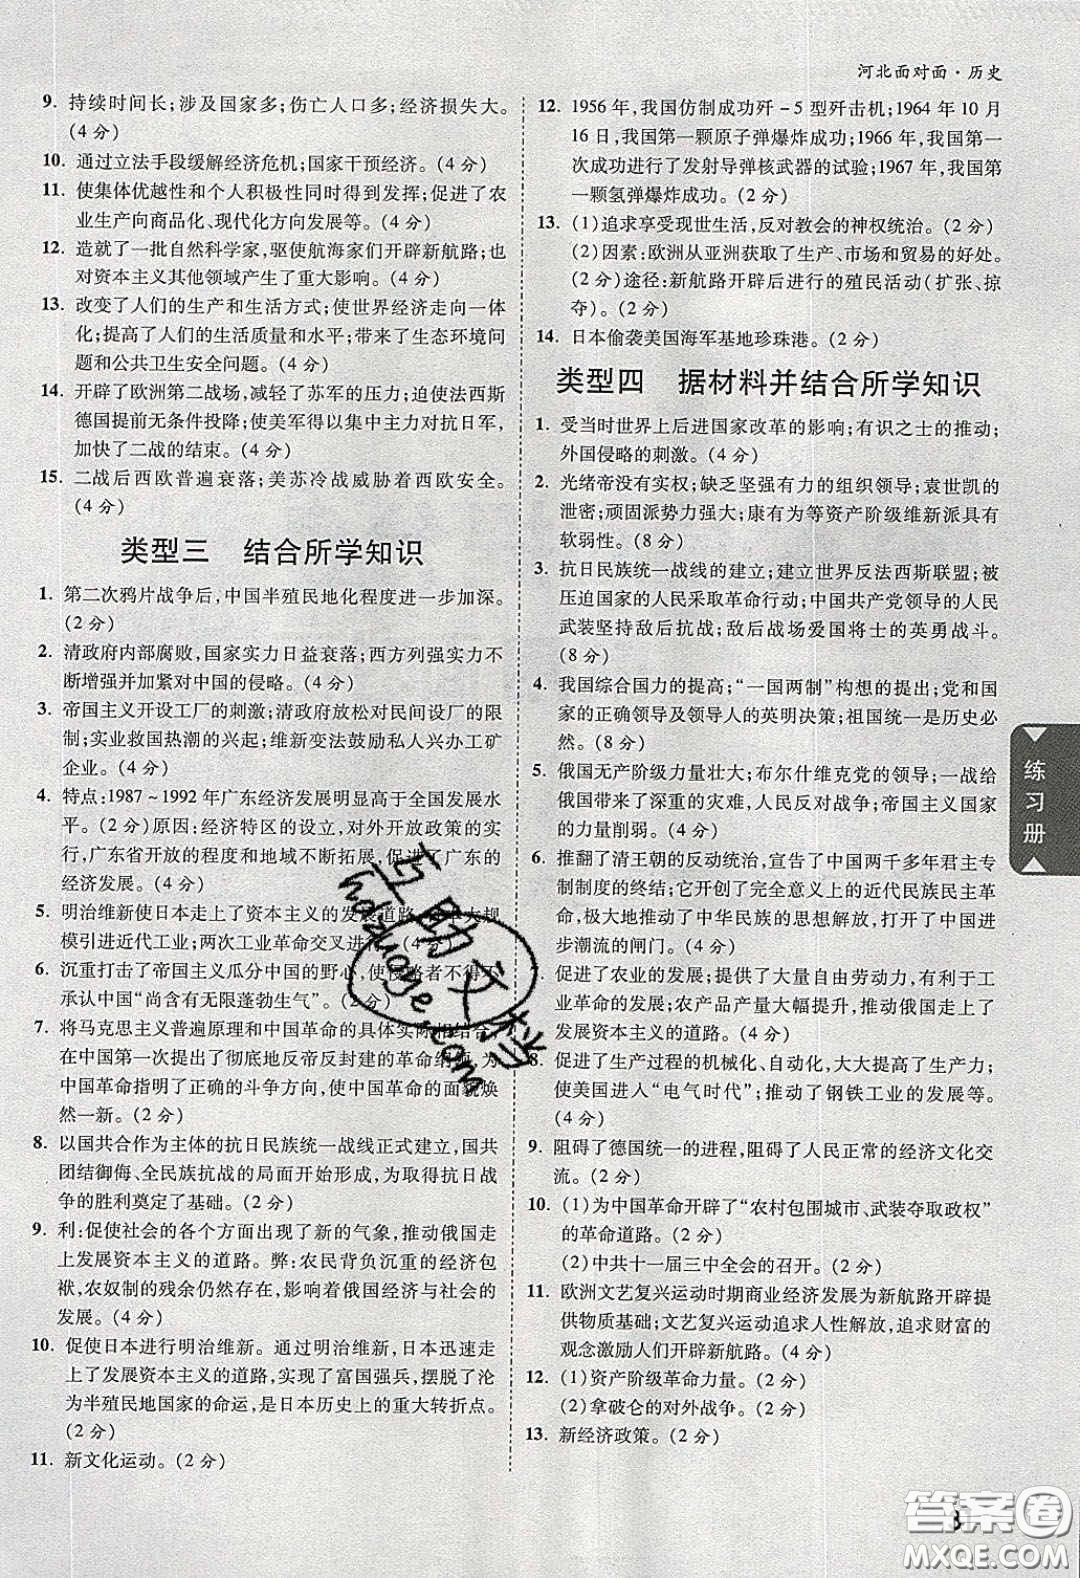 河北面对面·历史
9. 持续时间长;涉及国家多;伤亡人口多;经济损失大。
(4 分)
10. 通过立法手段缓解经济危机;国家干预经济。(4 分)
11. 使集体优越性和个人积极性同时得到发挥;促进了农
业生产向商品化、现代化方向发展等。(4 分)
12. 造就了一批自然科学家,驱使航海家们开辟新航路;也
对资本主义其他领域产生了重大影响。(4 分)
13. 改变了人们的生产和生活方式;使世界经济走向一体
化;提高了人们的生活质量和水平;带来了生态环境问
题和公共卫生安全问题。(4 分)
14. 开辟了欧洲第二战场,减轻了苏军的压力;迫使法西斯
德国提前无条件投降;使美军得以集中主力对抗日军,
加快了二战的结束。(4 分)
15. 二战后西欧普遍衰落;美苏冷战威胁着西欧安全。
(4 分)
类型三 结合所学知识
1. 第二次鸦片战争后,中国半殖民地化程度进一步加深。
(2 分)
2. 清政府内部腐败,国家实力日益衰落;西方列强实力不
断增强并加紧对中国的侵略。(4 分)
3. 帝国主义开设工厂的刺激;清政府放松对民间设厂的限
制;实业救国热潮的兴起;维新变法鼓励私人兴办工矿
企业。(4 分)
4. 特点:1987~1992 年广东经济发展明显高于全国发展水
平。(2 分)原因:经济特区的设立,对外开放政策的实行,
广东省开放的程度和地域不断拓展,促进了广东的
经济发展。(4 分)
5. 明治维新使日本走上了资本主义的发展道路,日本大规
模引进近代工业;两次工业革命交叉进行。(4 分)
6. 沉重打击了帝国主义瓜分中国的野心,使侵略者不得不
承认中国“尚含有无限蓬勃生气”。(2 分)
7. 将马克思主义普遍原理和中国革命的具体实际相结合,
在中国第一次提出了彻底地反帝反封建的革命纲领,为
中国革命指明了正确的斗争方向,使中国革命的面貌焕
然一新。(2 分)
8. 以国共合作为主体的抗日民族统一战线正式建立,国共
团结御侮、全民族抗战的局面开始形成,为取得抗日战
争的胜利奠定了基础。(2 分)
9. 利:促使社会的各个方面出现了新的气象,推动俄国走
上发展资本主义的道路。弊:农民背负沉重的经济包
袱,农奴制的残余仍然存在,影响着俄国经济与社会的
发展。(4 分)
10. 促使日本进行明治维新。通过明治维新,日本迅速走
上了发展资本主义的道路,实现了富国强兵,摆脱了沦
为半殖民地国家的命运,是日本历史上的重大转折点。
(2 分)
11. 新文化运动。(2 分)
12. 1956 年,我国仿制成功歼－5 型歼击机;1964 年 10 月
16 日,我国第一颗原子弹爆炸成功;1966 年,我国第一
次成功进行了发射导弹核武器的试验;1967 年,我国第
一颗氢弹爆炸成功。(2 分)
13. (1)追求享受现世生活,反对教会的神权统治。(2 分)
(2)因素:欧洲从亚洲获取了生产、市场和贸易的好处。
(2 分)途径:新航路开辟后的殖民活动(扩张、掠
夺)。(2 分)
14. 日本偷袭美国海军基地珍珠港。(2 分)
类型四 据材料并结合所学知识
1. 受当时世界上后进国家改革的影响;有识之士的推动;
外国侵略的刺激。(6 分)
2. 光绪帝没有实权;缺乏坚强有力的组织领导;袁世凯的
告密;顽固派势力强大;康有为等资产阶级维新派具有
软弱性。(8 分)
3. 抗日民族统一战线的建立;建立世界反法西斯联盟;被
压迫国家的人民采取革命行动;中国共产党领导的人民
武装坚持敌后抗战;敌后战场爱国将士的英勇战斗。
(8 分)
4. 我国综合国力的提高;“一国两制”构想的提出;党和国
家的正确领导及领导人的英明决策;祖国统一是历史必
然。(8 分)
5. 俄国无产阶级力量壮大;布尔什维克党的领导;一战给
俄国带来了深重的灾难,人民反对战争;帝国主义国家
的力量削弱。(4 分)
6. 推翻了清王朝的反动统治,宣告了中国两千多年君主专
制制度的终结;它开创了完全意义上的近代民族民主革
命,极大地推动了中华民族的思想解放,打开了中国进
步潮流的闸门。(4 分)
促进了农业的发展;提供了大量自由劳动力,有利于工
业革命的发展;农产品产量大幅提升,推动俄国走上了
发展资本主义的道路。(4 分)
8. 促进了生产过程的机械化、自动化,大大提高了生产力;
使美国进入“电气时代”;推动了钢铁工业的发展等。
(4 分)
9. 阻碍了德国统一的进程,阻碍了人民正常的经济文化交
流。(2 分)
10. (1)为中国革命开辟了“农村包围城市、武装夺取政权”
的革命道路。(2 分)
(2)中共十一届三中全会的召开。(2 分)
11. 欧洲文艺复兴运动时期商业经济发展为新航路开辟提
供物质基础;文艺复兴运动追求人性解放,追求财富的
观念激励人们开辟新航路。(4 分)
12. (1)资产阶级革命力量。(2 分)
(2)拿破仑的对外战争。(2 分)
13. 新经济政策。(2 分)
练习册
3
互助文档
hdzuoye.com
答案圈
MXQE.COM